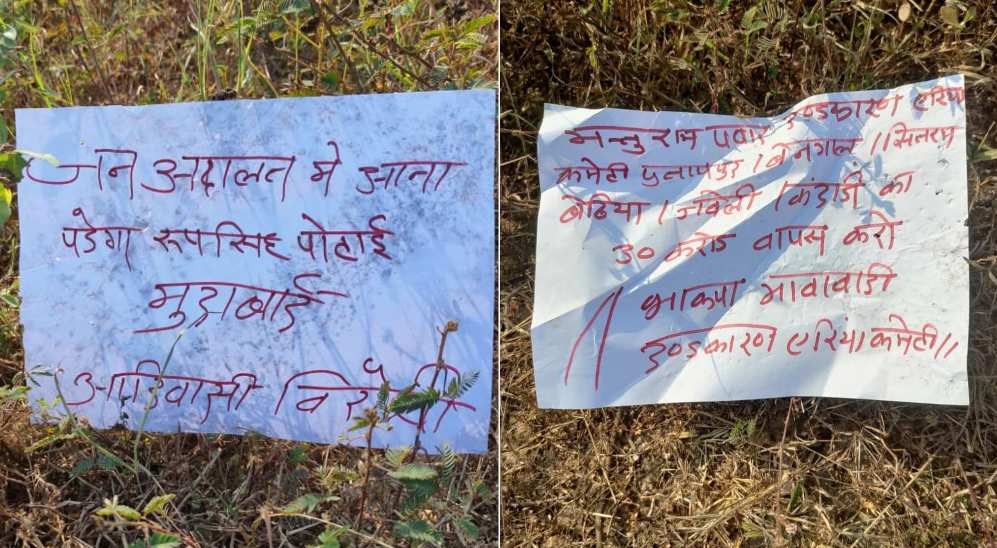 जन अदालत मे आना
पडेगा रूपसिह पोटाई
मुद्राबाई
आदिवासी विरोधी
मन्तुराम पवार दण्डकारण एरिया
कमेटी प्रतापपुर /
कोडिया / जवेली / कंदाडी का
30 करोड वापस करो
भाकपा मावावादी
दण्डकारण एरिया कमेटी //